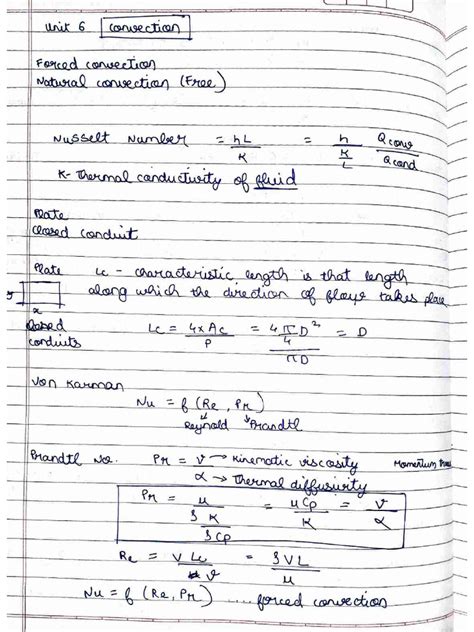 Unit 6 convection
Forced convection
Natural convection (Free)
Nusselt Number = hL/K = h/(K/L) Qconv/Qcond
K- Thermal conductivity of fluid
Plate
closed conduit
Plate Lc - characteristic length is that length
along which the direction of flow takes place
x
closed conduits Lc = 4xAc/P = (4πD²/4)/πD = D
Von Karman
Nu = f (Re, Pr)
Reynold Prandtl
Prandtl No. Pr = ν → Kinematic viscosity Momentum
α → Thermal diffusivity
Pr = μ/(ρK/ρCp) = μCp/K = ν/α
Re = V Lc/ν = ρVL/μ
Nu = f (Re, Pr) .... forced convection